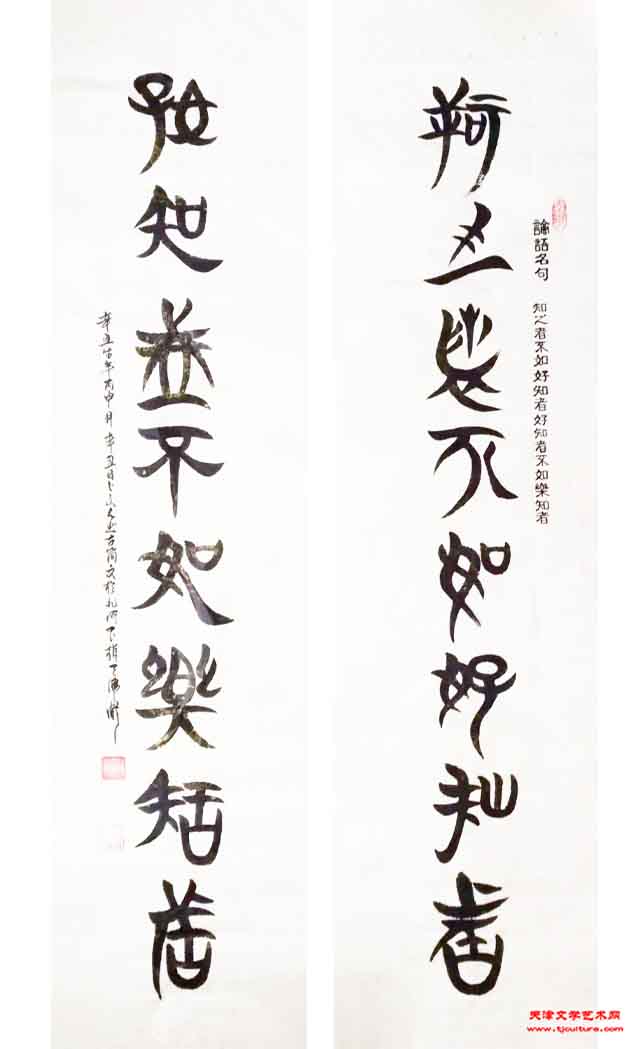 論語名句 知之者不如好知者好知者不如樂知者
知之者不如好知者
好知者不如樂知者
天津文学艺术网
www.tjculture.com